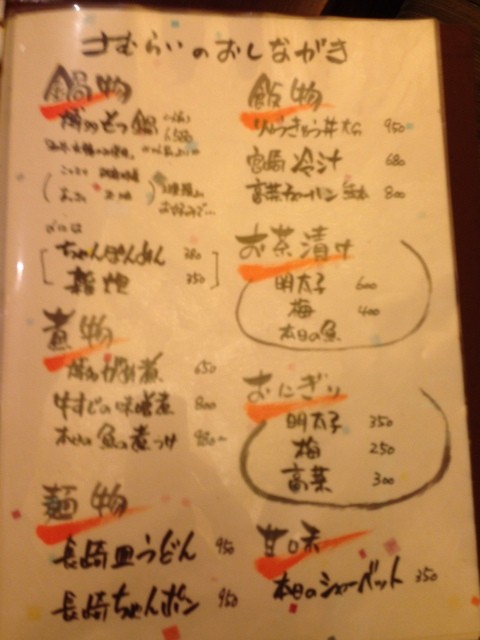 さむらいのおしながき
鍋物
博多もつ鍋 1580
ちゃんぽんめん 280
雑炊 250
煮物
博多がめ煮 650
牛すじの味噌煮 800
本日の魚の煮つけ 980~
麺物
長崎皿うどん 950
長崎ちゃんポン 950
飯物
りゅうきゅう丼 950
宮崎冷汁 680
高菜チャーハン 800
お茶漬け
明太子 600
梅 400
本日の魚
おにぎり
明太子 350
梅 250
高菜 300
甘味
本日のシャーベット 350